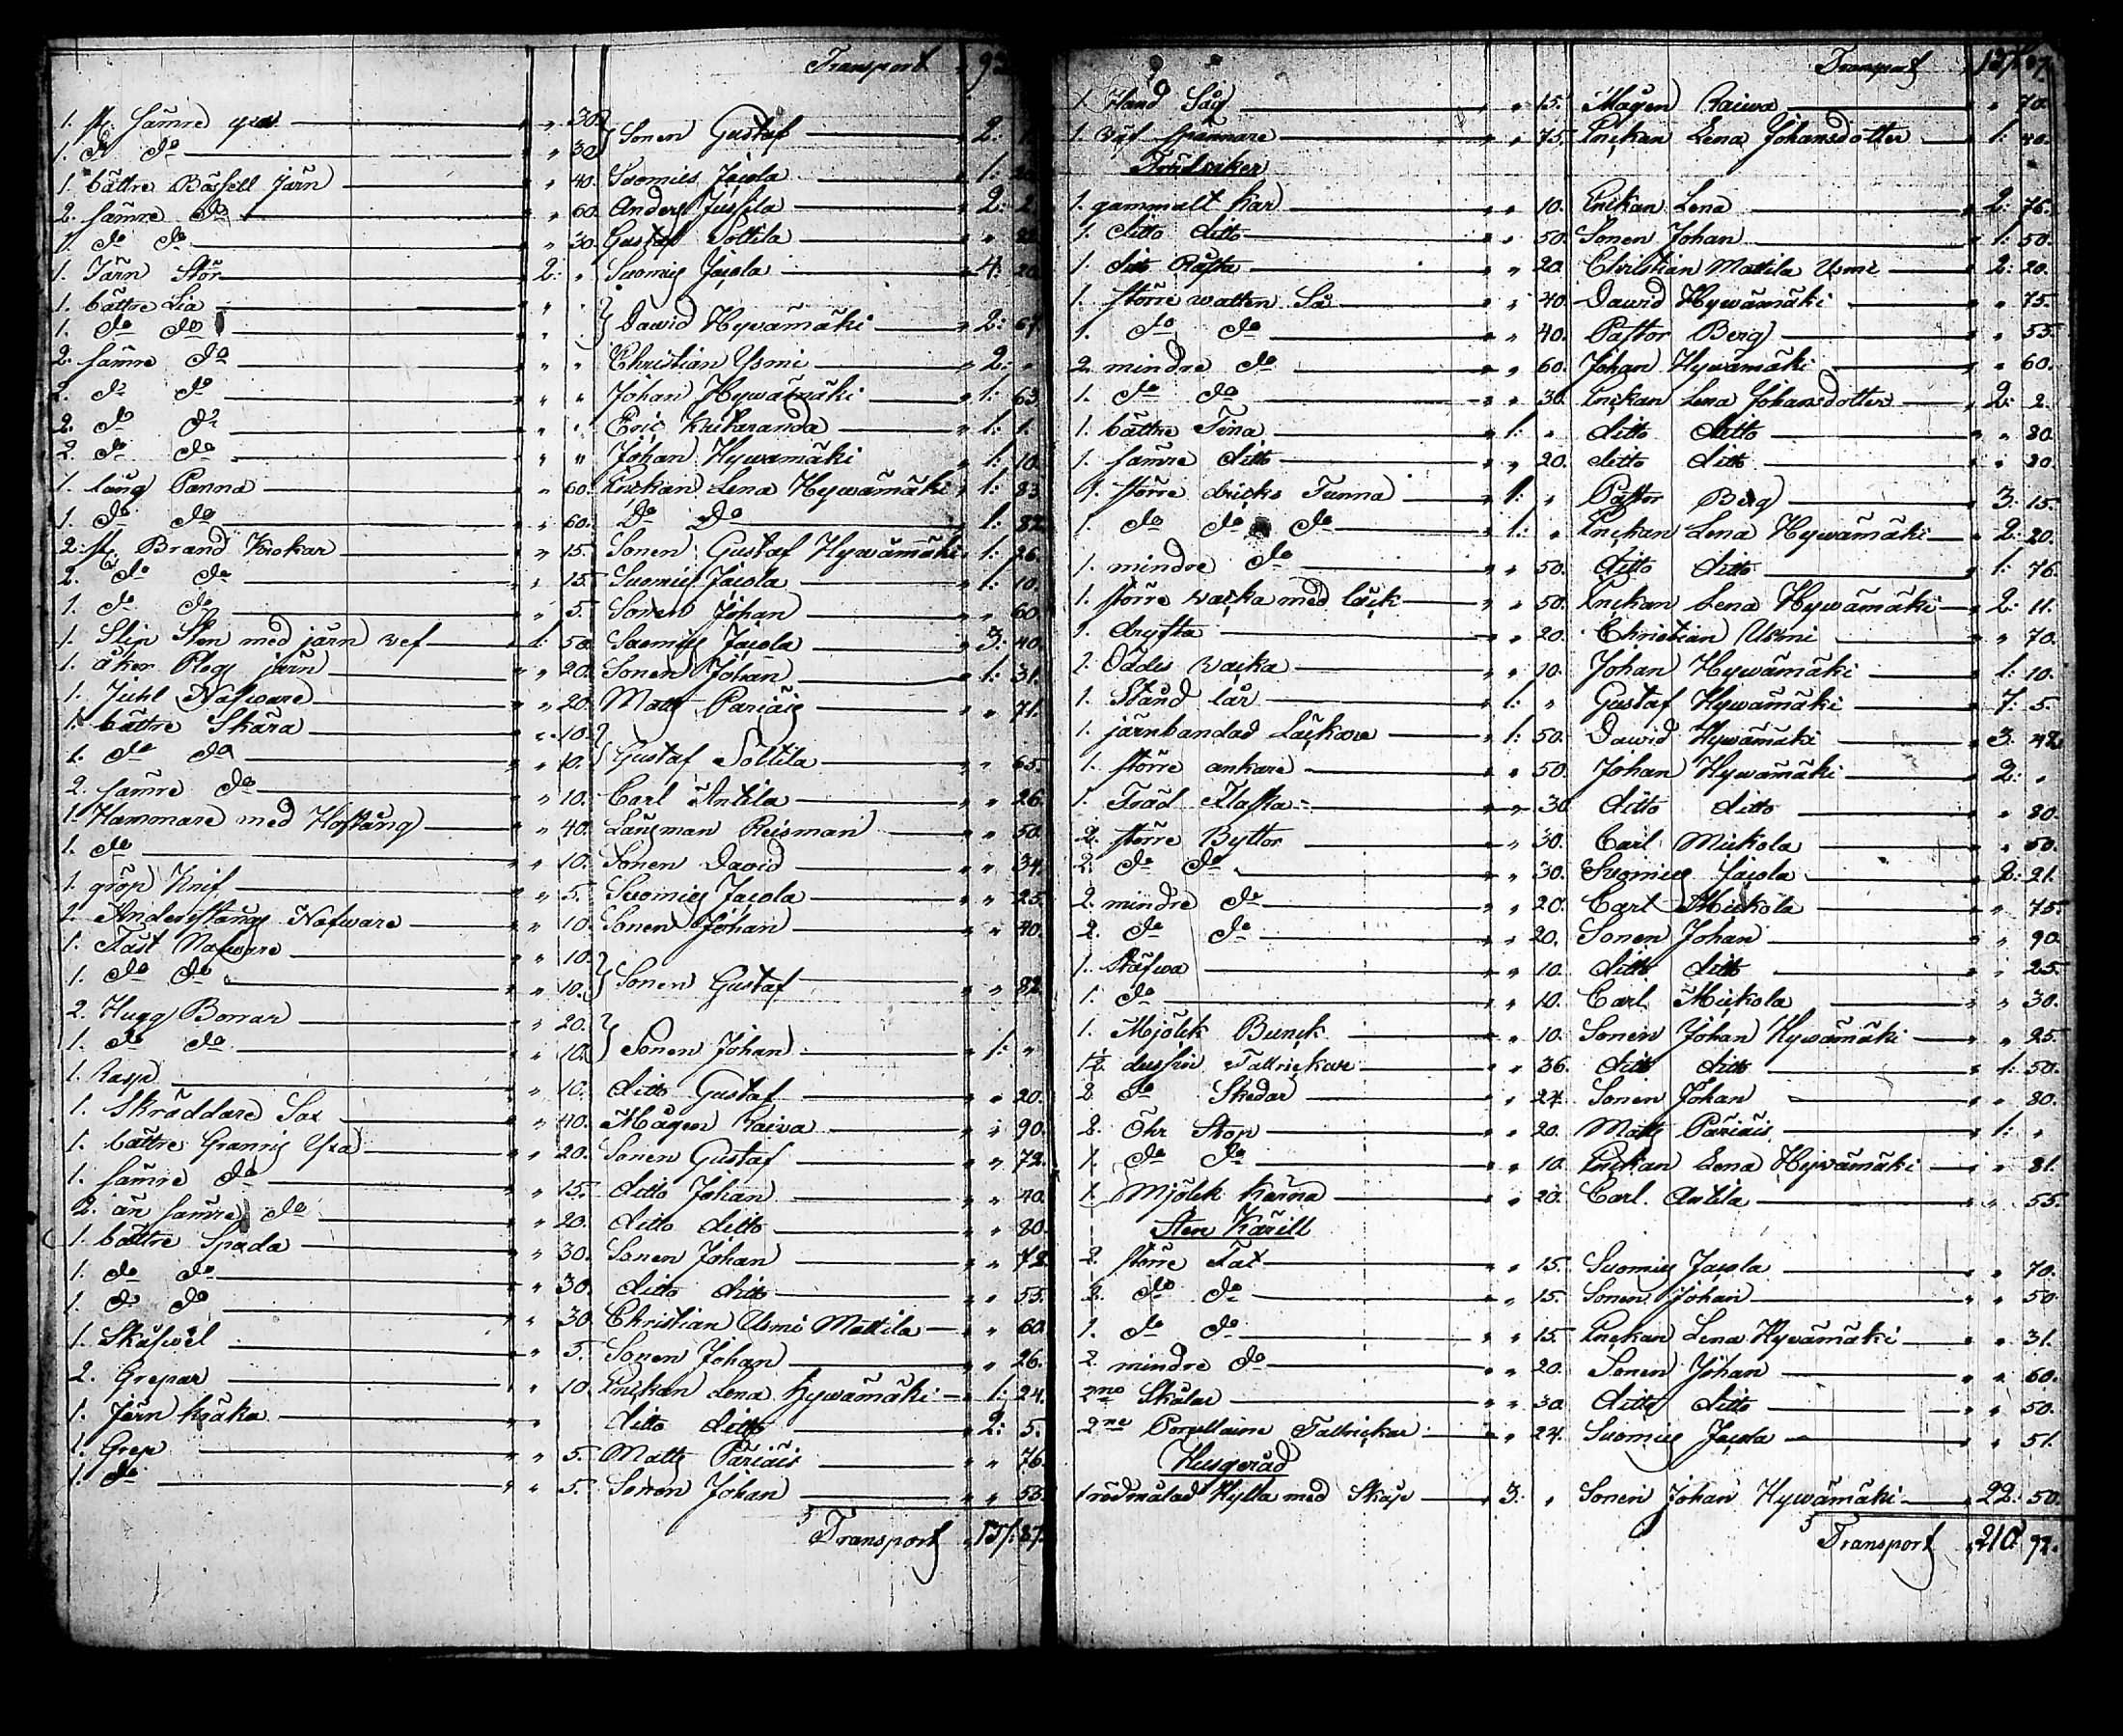 Transport " 92
1. st. sämre yxa " " 30.
1. do do " " 30. } Sonen Gustaf " 2:
1. bättre Bässell Järn " " 40. Suomies Jacola " 1:
2. sämre do " " 60. Anders Jussila " 2: 2.
1. do do " " 30. Gustaf Sottila " "
1. Järn Stör " 2: " Suomies Jacola " 4: 20.
1. bättre Lia " "
1. do do " " } Dawid Hywämäki " 2: 67.
2. sämre do " " Christian Usmi " 2: "
2. do do " " Johan Hywämäki " 1: 63.
2. do do " " Eric " 1: 1.
2. do do " " Johan Hywämäki " 1: 10.
1. lång Panna " " 60. Enckan Lena Hywämäki " 1: 83.
1. do do " " 60. Do Do " 1: 82.
2. st. Brand Krokar " " 15. Sonen Gustaf Hywämäki " 1: 26.
2. do do " " 15. Suomies Jacola " 1: 10.
1. do do " " 5. Sonen Johan " " 60.
1. Slip Sten med järn vef " 1: 50. Suomies Jacola " 3: 40.
1. åker Plog järn " " 20. Sonen Johan " 1: 31.
1. Juhl Nafware " " 20. Matts Pariais " " 71.
1. bättre Skära " " 10.
1. do do " " 10. } Gustaf Sottila " " 65.
2. sämre do " " 10. Carl Antila " " 26.
1. Hammare med Hoftång " " 40. Länsman Reisman " " 50.
1. do " " 10. Sonen David " " 34.
1. gröp Knif " " 5. Suomies Jacola " " 25.
1. Anderstang Nafware " " 10. Sonen Johan " " 40.
1. Tast Nafware " " 10.
1. do do " " 10. } Sonen Gustaf " " 82.
2. Hugg Borrar " " 20.
1. do do " " 10. } Sonen Johan " 1: "
1. Rasp " " 10. ditto Gustaf " " 20.
1. Skräddare Sax " " 40. Mågen Raiwa " " 90.
1. bättre Granris Yxa " " 20. Sonen Gustaf " " 72.
1. sämre do " " 15. ditto Johan " " 40.
2. än sämre do " " 20. ditto ditto " " 80.
1. bättre Spada " " 30. Sonen Johan " " 72.
1. do do " " 30. ditto ditto " " 55.
1. do do " " 30. Christian Usmi Mattila " " 60.
1. Skåfwel " " 5. Sonen Johan " " 26.
2. Grepar " " 10. Enckan Lena Hywämäki " 1: 24.
1. Järn kräka " " ditto ditto " 2: 5.
1. Grep " " 5. Matts Pariais " " 76.
1. do " " 5. Sonen Johan " " 53.
Transport " 137: 87.
Transport 137: 87.
1. Hand Såg " " 15. Mågen Raiwa " " 70.
1. Spännare " " 75. Enckan Lena Johansdotter " 1: 40.
Trädsaker
1. gammalt Kar " " 10. Enckan Lena " 2: 76.
1. ditto ditto " " 50. Sonen Johan " 1: 50.
1. ditto " " 20. Christian Mattila Usmi " 2: 20.
1. större watten Så " " 40. Dawid Hywämäki " " 75.
1. do do " " 40. Pastor Berg " " 55.
2. mindre do " " 60. Johan Hywämäki " " 60.
1. do do " " 30. Enckan Lena Johansdotter " 2: 2.
1. bättre Tina " 1: " ditto ditto " " 80.
1. sämre ditto " " 20. ditto ditto " " 80.
1. större dricks Tunna " 1: " Pastor Berg " 3: 15.
1. do do do " 1: " Enckan Lena Hywämäki " 2: 20.
1. mindre do " " 50. ditto ditto " 1: 76.
1. större wacka med låck " " 50. Enckan Lena Hywämäki " 2: 11.
1. dryfta " " 20. Christian Usmi " " 70.
2. Oddis wacka " " 10. Johan Hywämäki " 1: 10.
1. Stånd lår " 1: " Gustaf Hywämäki " 7: 5.
1. järnbandad Läckare " 1: 50. Dawid Hywämäki " 3: 42.
1. större ankare " " 50. Johan Hywämäki " 2: "
1. Träd Flaska " " 30. ditto ditto " " 80.
2. större Byttor " " 30. Carl Mickola " " 50.
2. do do " " 30. Suomies Jacola " 2: 21.
2. mindre do " " 20. Carl Mickola " " 75.
2. do do " " 20. Sonen Johan " " 90.
1. Stäfwa " " 10. ditto ditto " " 25.
1. do " " 10. Carl Mickola " " 30.
1. Mjölck Bunck " " 10. Sonen Johan Hywämäki " " 25.
1½ dussin Tallrickar " " 36. ditto ditto " 1: 50.
2 do Skedar " " 24. Sonen Johan " " 80.
2. Öhr Stop " " 20. Matts Pariais " 1: "
1. do do " " 10. Enckan Lena Hywämäki " " 81.
1. Mjölck Kärna " " 20. Carl Antila " " 55.
Sten Kärill
2. större Fat " " 15. Suomies Jacola " " 70.
2. do do " " 15. Sonen Johan " " 50.
1. do do " " 15. Enckan Lena Hywämäki " " 31.
2. mindre do " " 20. Sonen Johan " " 60.
2ne Skålar " " 30. ditto ditto " " 50.
2ne Porcellaine Tallrickar " " 24. Suomies Jacola " " 51.
Husgeråd
1 rödmålad Hylla med Skåp " 3: " Sonen Johan Hywämäki " 22: 50.
Transport " 210: 92.